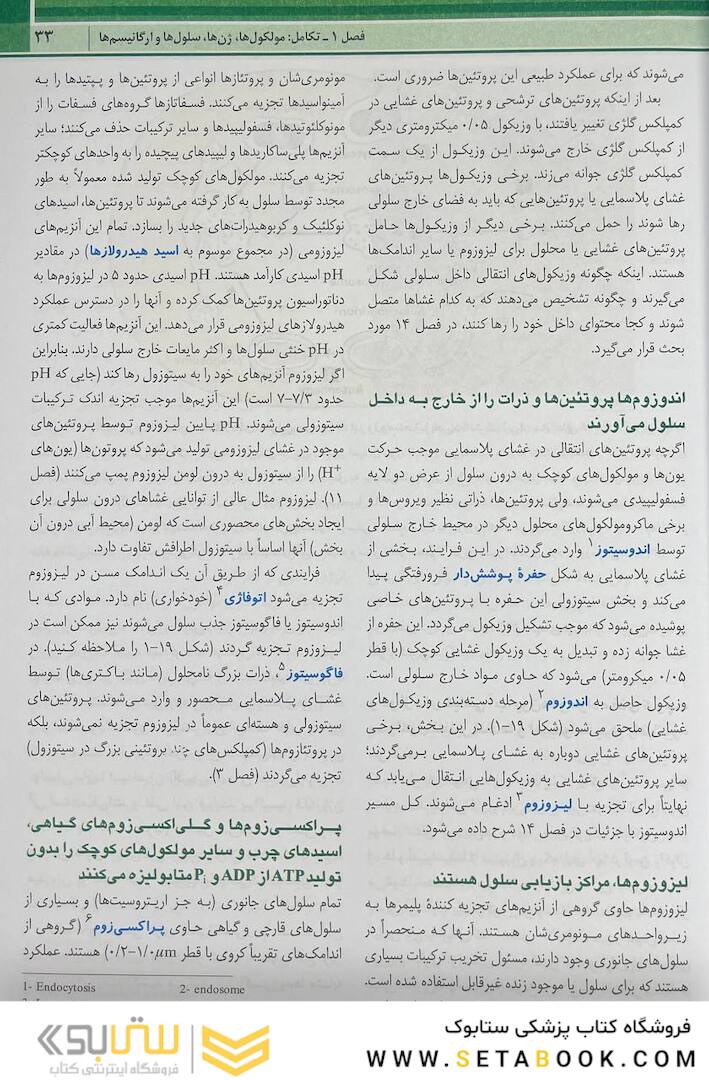 فصل ۱ ـ تکامل: مولکول‌ها، ژن‌ها، سلول‌ها و ارگانیسم‌ها
۳۳
می‌شوند که برای عملکرد طبیعی این پروتئین‌ها ضروری است.
بعد از اینکه پروتئین‌های ترشحی و پروتئین‌های غشایی در
کمپلکس گلژی تغییر یافتند، با وزیکول ۰/۰۵ میکرومتری دیگر
از کمپلکس گلژی خارج می‌شوند. این وزیکول از یک سمت
کمپلکس گلژی جوانه می‌زند. برخی وزیکول‌ها پروتئین‌های
غشای پلاسمایی یا پروتئین‌هایی که باید به فضای خارج سلولی
رها شوند را حمل می‌کنند. برخی دیگر از وزیکول‌ها حامل
پروتئین‌های غشایی یا محلول برای لیزوزوم یا سایر اندامک‌ها
هستند. اینکه چگونه وزیکول‌های انتقالی داخل سلولی شکل
می‌گیرند و چگونه تشخیص می‌دهند که به کدام غشاها متصل
شوند و کجا محتوای داخل خود را رها کنند، در فصل ۱۴ مورد
بحث قرار می‌گیرد.
اندوزوم‌ها پروتئین‌ها و ذرات را از خارج به داخل
سلول می‌آورند
اگرچه پروتئین‌های انتقالی در غشای پلاسمایی موجب حرکت
یون‌ها و مولکول‌های کوچک به درون سلول از عرض دو لایه
فسفولیپیدی می‌شوند، ولی پروتئین‌ها، ذراتی نظیر ویروس‌ها و
برخی ماکرومولکول‌های محلول دیگر در محیط خارج سلولی
توسط اندوسیتوز۱ وارد می‌گردند. در این فرایند، بخشی از
غشای پلاسمایی به شکل حفرهٔ پوشش‌دار فرورفتگی پیدا
می‌کند و بخش سیتوزولی این حفره با پروتئین‌های خاصی
پوشیده می‌شود که موجب تشکیل وزیکول می‌گردد. این حفره از
غشا جوانه زده و تبدیل به یک وزیکول غشایی کوچک (با قطر
۰/۰۵ میکرومتر) می‌شود که حاوی مواد خارج سلولی است.
وزیکول حاصل به اندوزوم۲ (مرحله دسته‌بندی وزیکول‌های
غشایی) ملحق می‌شود (شکل ۱۹–۱). در این بخش، برخی
پروتئین‌های غشایی دوباره به غشای پلاسمایی برمی‌گردند؛
سایر پروتئین‌های غشایی به وزیکول‌هایی انتقال می‌یابد که
نهایتاً برای تجزیه با لیزوزوم۳ ادغام می‌شوند. کل مسیر
اندوسیتوز با جزئیات در فصل ۱۴ شرح داده می‌شود.
لیزوزوم‌ها، مراکز بازیابی سلول هستند
لیزوزوم‌ها حاوی گروهی از آنزیم‌های تجزیه کنندهٔ پلیمرها به
زیرواحدهای مونومری‌شان هستند. آنها که منحصراً در
سلول‌های جانوری وجود دارند، مسئول تخریب ترکیبات بسیاری
هستند که برای سلول یا موجود زنده غیرقابل استفاده شده است.
مونومری‌شان و پروتئازها انواعی از پروتئین‌ها و پپتیدها را به
آمینواسیدها تجزیه می‌کنند. فسفاتازها گروه‌های فسفات را از
مونوکلئوتیدها، فسفولیپیدها و سایر ترکیبات حذف می‌کنند؛ سایر
آنزیم‌ها پلی‌ساکاریدها و لیپیدهای پیچیده را به واحدهای کوچکتر
تجزیه می‌کنند. مولکول‌های کوچک تولید شده معمولاً به طور
مجدد توسط سلول به کار گرفته می‌شوند تا پروتئین‌ها، اسیدهای
نوکلئیک و کربوهیدرات‌های جدید را بسازد. تمام این آنزیم‌های
لیزوزومی (در مجموع موسوم به اسید هیدرولازها) در مقادیر
pH اسیدی کارآمد هستند. pH اسیدی حدود ۵ در لیزوزوم‌ها به
دناتوراسیون پروتئین‌ها کمک کرده و آنها را در دسترس عملکرد
هیدرولازهای لیزوزومی قرار می‌دهد. این آنزیم‌ها فعالیت کمتری
در pH خنثی سلول‌ها و اکثر مایعات خارج سلولی دارند. بنابراین
اگر لیزوزوم آنزیم‌های خود را به سیتوزول رها کند (جایی که pH
حدود ۷/۳–۷ است) این آنزیم‌ها موجب تجزیه اندک ترکیبات
سیتوزولی می‌شوند. pH پایین لیزوزوم توسط پروتئین‌های
موجود در غشای لیزوزومی تولید می‌شود که پروتون‌ها (یون‌های
H+) را از سیتوزول به درون لومن لیزوزوم پمپ می‌کنند (فصل
۱۱). لیزوزوم مثال عالی از توانایی غشاهای درون سلولی برای
ایجاد بخش‌های محصوری است که لومن (محیط آبی درون آن
بخش) آنها اساساً با سیتوزول اطرافش تفاوت دارد.
فرایندی که از طریق آن یک اندامک مسن در لیزوزوم
تجزیه می‌شود اتوفاژی۴ (خودخواری) نام دارد. موادی که با
اندوسیتوز یا فاگوسیتوز جذب سلول می‌شوند نیز ممکن است در
لیزوزوم تجزیه گردند (شکل ۱۹–۱ را ملاحظه کنید). در
فاگوسیتوز۵، ذرات بزرگ نامحلول (مانند باکتری‌ها) توسط
غشای پلاسمایی محصور و وارد می‌شوند. پروتئین‌های
سیتوزولی و هسته‌ای عموماً در لیزوزوم تجزیه نمی‌شوند، بلکه
در پروتئازوم‌ها (کمپلکس‌های چند پروتئینی بزرگ در سیتوزول)
تجزیه می‌گردند (فصل ۳).
پراکسی‌زوم‌ها و گلی‌اکسی‌زوم‌های گیاهی،
اسیدهای چرب و سایر مولکول‌های کوچک را بدون
تولید ATP از ADP و Pi متابولیزه می‌کنند
تمام سلول‌های جانوری (به جز اریتروسیت‌ها) و بسیاری از
سلول‌های قارچی و گیاهی حاوی پراکسی‌زوم۶ (گروهی از
اندامک‌های تقریباً کروی با قطر ۰/۲–۱/۰µm) هستند. عملکرد
1- Endocytosis
2- endosome
ستابوک
فروشگاه اینترنتی کتاب
فروشگاه کتاب پزشکی ستابوک
WWW.SETABOOK.COM